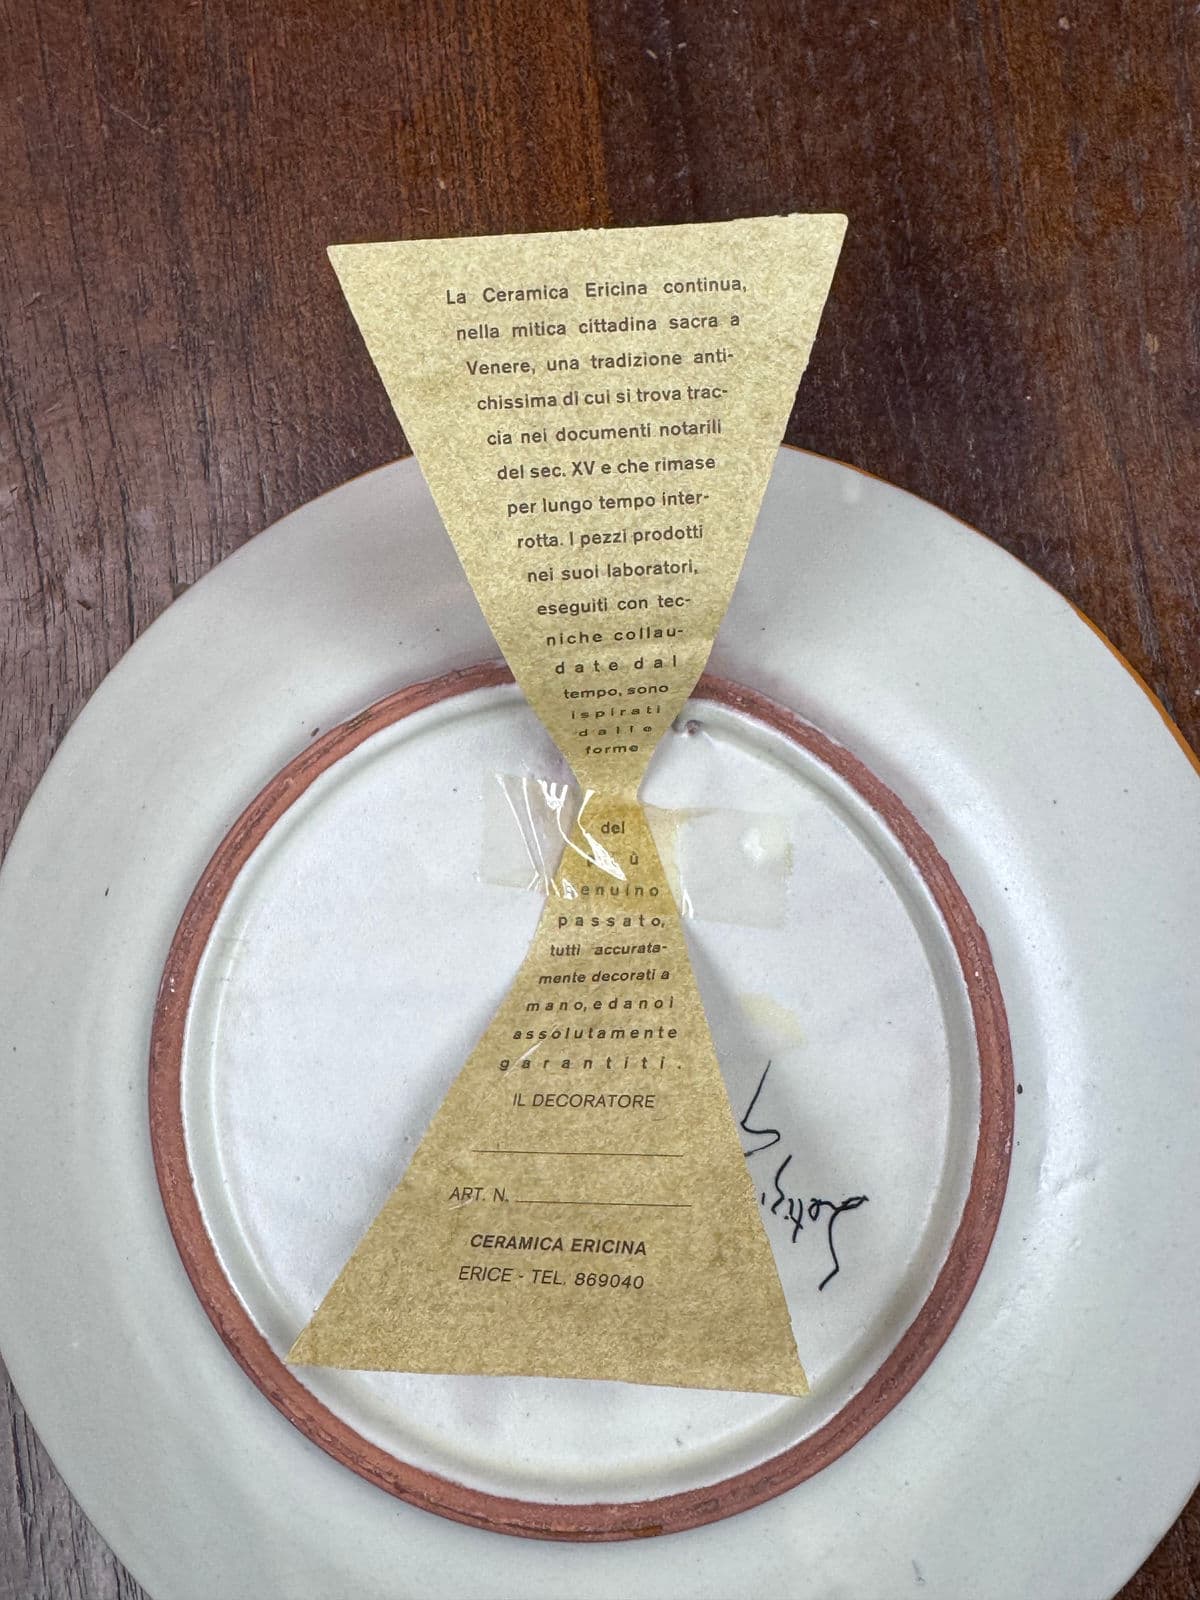 La Ceramica Ericina continua,
nella mitica cittadina sacra a
Venere, una tradizione anti-
chissima di cui si trova trac-
cia nei documenti notarili
del sec. XV e che rimase
per lungo tempo inter-
rotta. I pezzi prodotti
nei suoi laboratori,
eseguiti con tec-
niche collau-
date dal
tempo, sono
ispirati
dalle
forme
del
ù
genuino
passato,
tutti accurata-
mente decorati a
mano, e da noi
assolutamente
garantiti.
IL DECORATORE
ART. N.
CERAMICA ERICINA
ERICE - TEL. 869040